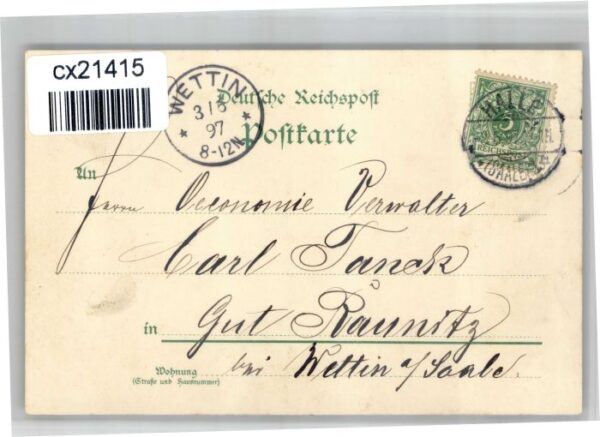 cx21415
WETTIN
3/6
97
8-12N
Deutsche Reichspost
Postkarte
HALLE
5
REICHSPOST
(SAALE)
An
Herrn Oeconomie Verwalter
Carl Tanck
in Gut Räunitz
Wohnung
(Straße und Hausnummer)
bei Wettin a/Saale.